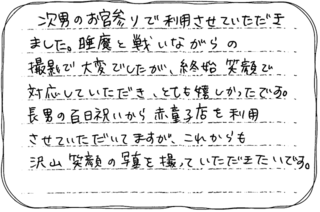 次男のお宮参りで利用させていただき
ました。睡魔と戦いながらの
撮影で大変でしたが、終始笑顔で
対応していただき、とても嬉しかったです。
長男の百日祝いから赤童子店を利用
させていただいてますが、これからも
沢山笑顔の写真を撮っていただきたいです。